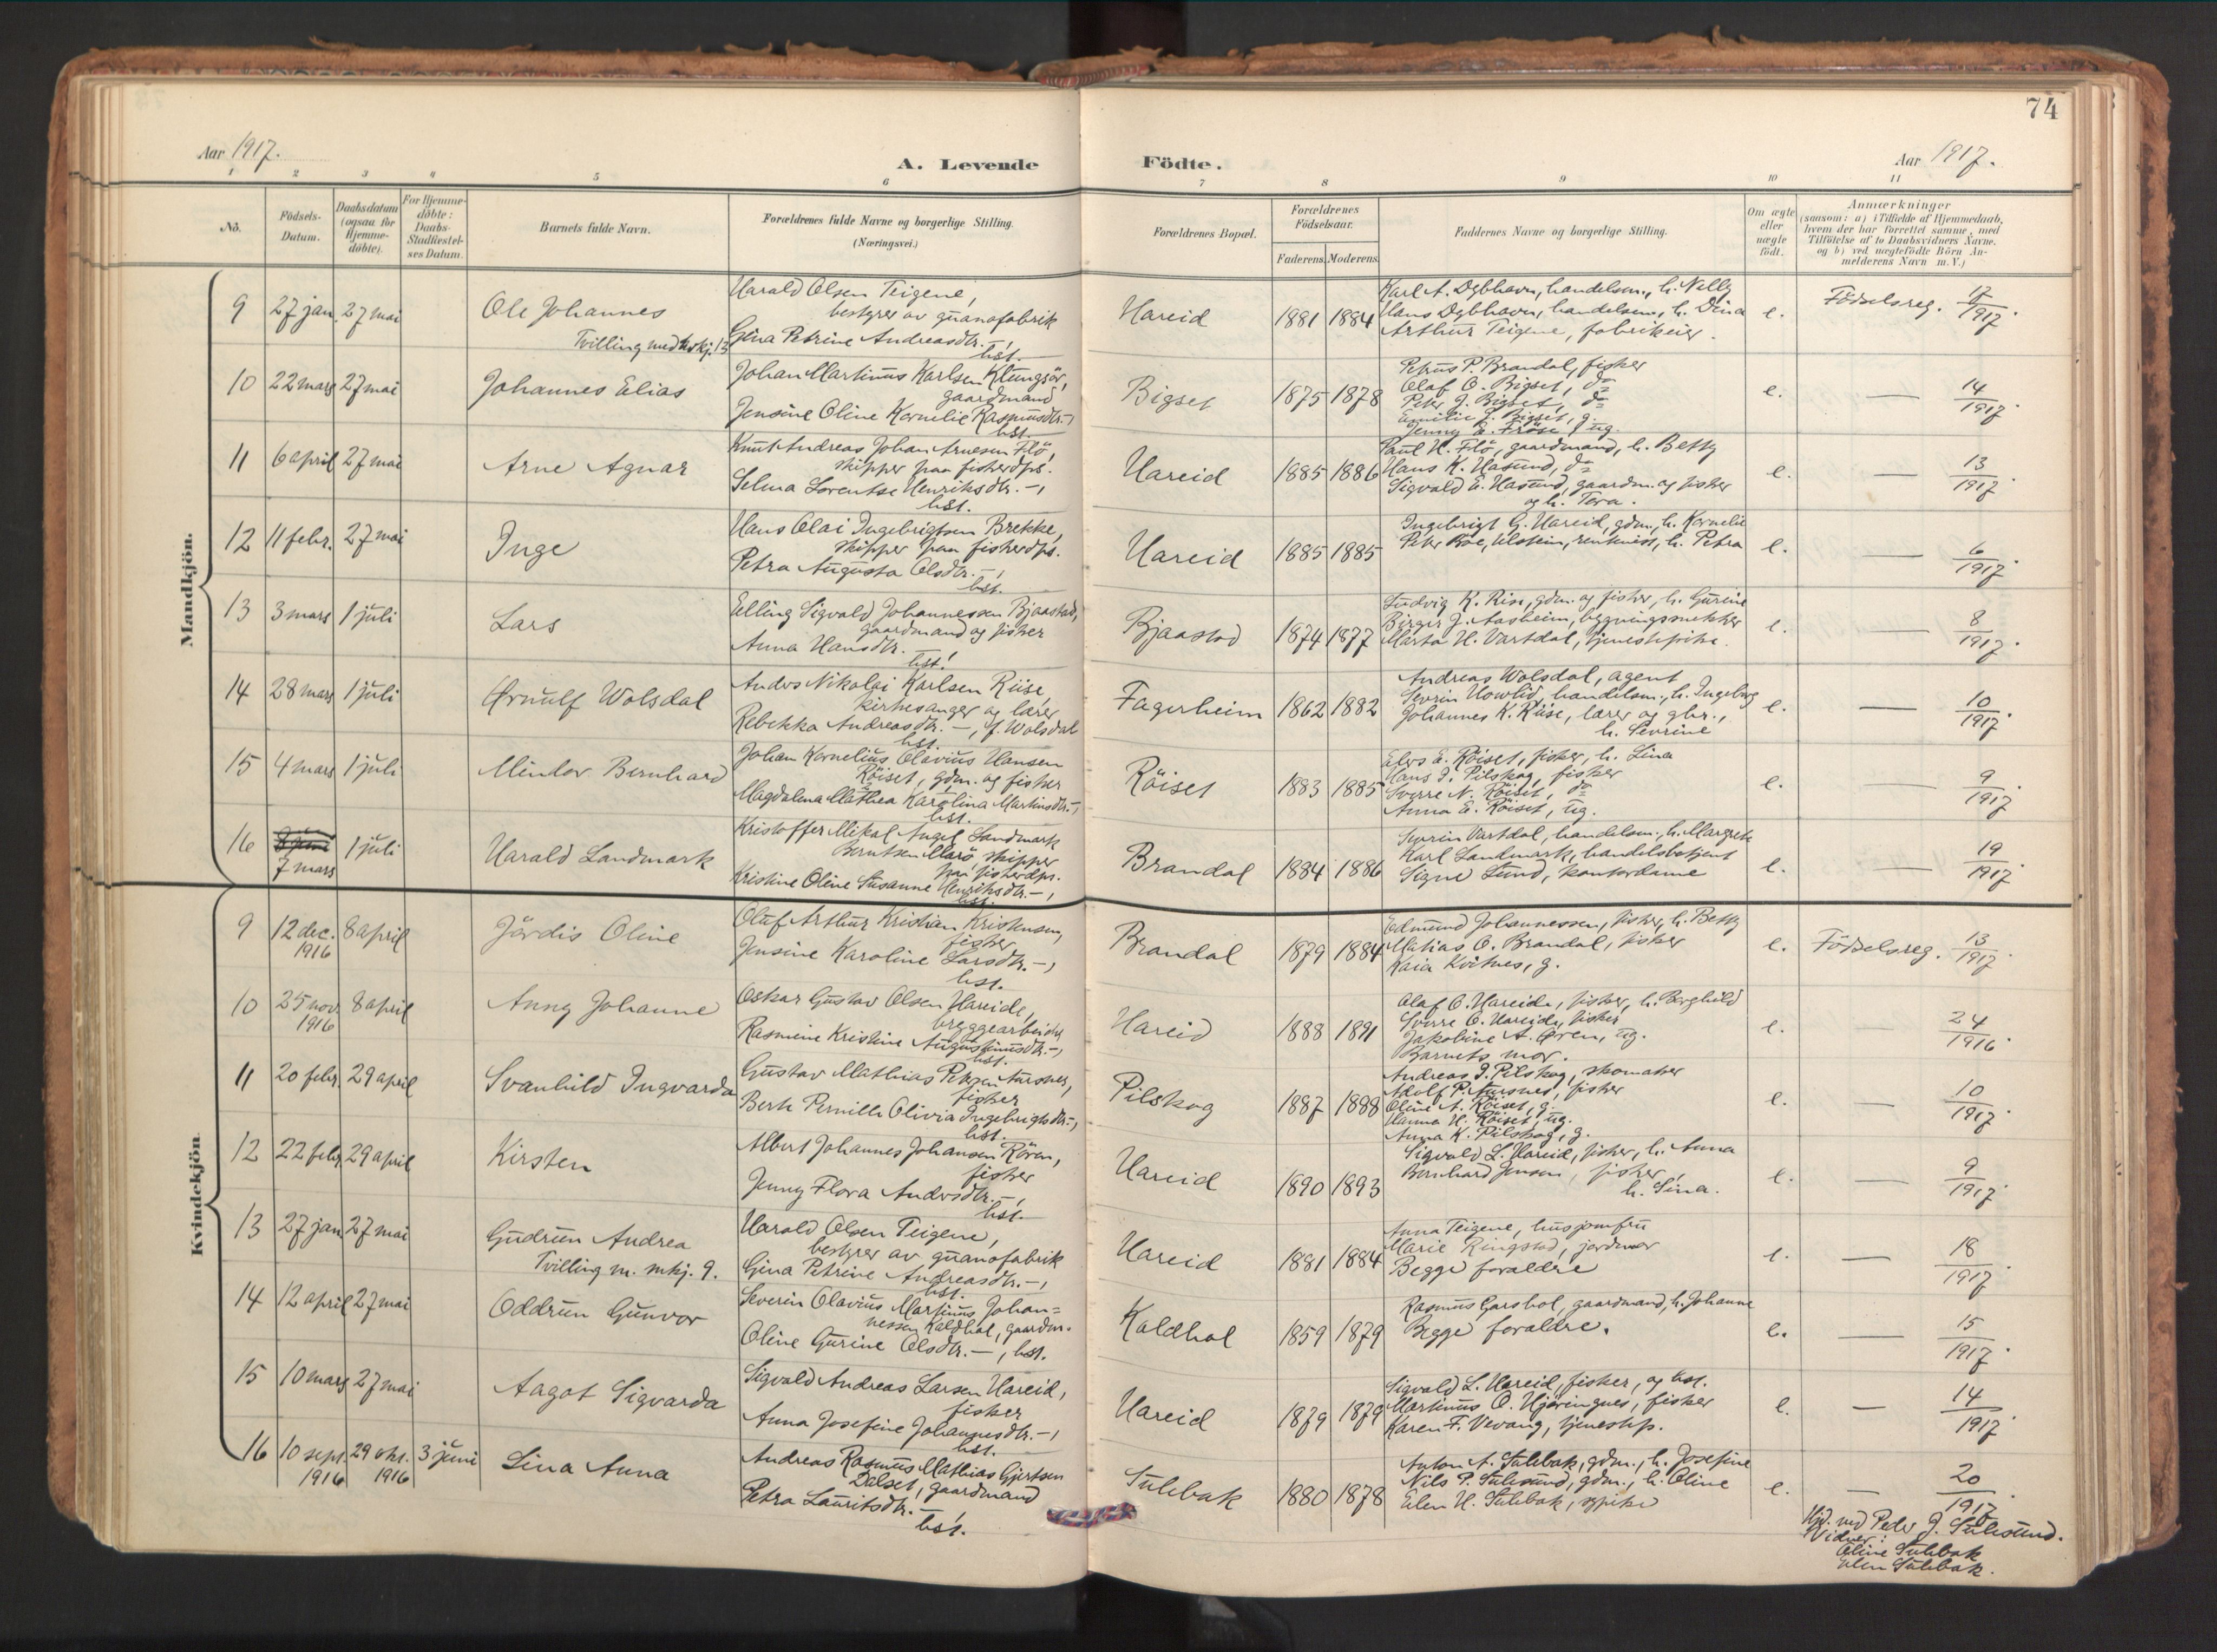 74
Aar 1917.
A. Levende
Födte.
Aar 1917.
1 2 3 4 5 6 7 8 9 10 11
No.
Födsels-Datum.
Daabsdatum (ogsaa for Hjemme-döbte).
For Hjemme-döbte: Daabs-Stadfæstel-ses Datum.
Barnets fulde Navn.
Forældrenes fulde Navne og borgerlige Stilling.
(Næringsvei.)
Forældrenes Bopæl.
Forældrenes Födselsaar.
Faderens. Moderens.
Faddernes Navne og borgerlige Stilling.
Om ægte eller uægte födt.
Anmærkninger
(saasom: a) i Tilfælde af Hjemmedaab,
hvem der har forrettet samme, med
Tilföielse af to Daabsvidners Navne.
og b) ved uægtefödte Börn An-
melderens Navn m. V.)
Mandkjön.
9 27 jan. 27 mai Ole Johannes
Tvilling med kvkj. 13
Harald Olsen Teigene,
bestyrer av guanofabrik
Gina Petrine Andreasdtr. —,
hst.
Hareid 1881 1884
Karl A. Dybhavn, handelsm., h. Nelly
Hans Dybhavn, handelsm., h. Dina
Arthur Teigene, fabrikeier.
e. Födselsreg. 17/1917.
10 22 mars 27 mai Johannes Elias
Johan Martinus Karlsen Klungsör,
gaardmand
Jensine Oline Kornelie Rasmusdtr. —,
hst.
Bigset 1875 1878
Petrus P. Brandal, fisker
Olaf O. Bigset, do
Peter J. Bigset, do
Emilie J. Bigset, g.
Jenny E. Fröse, ug.
e. — 14/1917.
11 6 april 27 mai Arne Agnar
Knut Andreas Johan Arnesen Flö,
skipper paa fiskerdps.
Selma Lorentse Henriksdtr. —,
hst.
Hareid 1885 1886
Paul H. Flö, gaardmand, h. Betty
Hans K. Hasund, do
Sigvald E. Hasund, gaardm. og fisker
og h. Tora.
e. — 13/1917.
12 11 febr. 27 mai Inge
Hans Olai Ingebrigtsen Brekke,
skipper paa fiskerdps.
Petra Augusta Olsdtr. —,
hst.
Hareid 1885 1885
Ingebrigt G. Hareid, gdm., h. Kornelie
Peter Boe, Ulstein, h. Petra
e. — 6/1917.
13 3 mars 1 juli Lars
Elling Sigvald Johannessen Bjaastad,
gaardmand og fisker
Anna Hansdtr. —,
hst.
Bjaastad 1874 1877
Ludvig K. Rise, gdm. og fisker, h. Gurine
Birger J. Aasheim, bygningssnekker
Marta H. Vartdal, tjenestepike.
e. — 8/1917.
14 28 mars 1 juli Ørnulf Wolsdal
Anders Nikolai Karlsen Riise,
kirkesanger og lærer
Rebekka Andreasdtr. —, f. Wolsdal
hst.
Fagerheim 1862 1882
Andreas Wolsdal, agent
Sevrin Howlid, handelsm., h. Ingeborg
Johannes K. Riise, lærer og gbr.,
h. Sevrine
e. — 10/1917.
15 4 mars 1 juli Minlov Bernhard
Johan Kornelius Olavius Hansen
Röiset, gdm. og fisker
Magdalena Mathea Karolina Martinsdtr. —,
hst.
Röiset 1883 1885
Elers E. Röiset, fisker, h. Lina
Hans I. Pilskog, fisker
Sverre N. Röiset, do
Anna E. Röiset, ug.
e. — 9/1917.
16 7 mars 1 juli Harald Landmark
Kristoffer Mikal Angel Landmark
Berntsen Marö, skipper
paa fiskerdps.
Kristine Oline Susanne Henriksdtr. —,
hst.
Brandal 1884 1886
Sevrin Vartdal, handelsm., h. Margrete
Karl Landmark, handelsbetjent
Signe Lund, kontordame
e. — 19/1917.
Kvindekjön.
9 12 dec. 1916 8 april Jördis Oline
Oluf Arthur Kristian Kristensen,
fisker
Jensine Karoline Larsdtr. —,
hst.
Brandal 1879 1884
Edmund Johannessen, fisker, h. Betty
Matias O. Brandal, fisker
Kaia Kvitnes, g.
e. Födselsreg. 13/1917.
10 25 nov. 1916 8 april Anny Johanne
Oskar Gustav Olsen Hareide,
bryggearbeider
Rasmine Kristine Augustinusdtr. —,
hst.
Hareid 1888 1891
Olaf O. Hareide, fisker, h. Borghild
Sverre O. Hareide, fisker
Jakobine A. Øren, ug.
Barnets mor.
e. 24/1916.
11 20 febr. 29 april Svanhild Ingvarda
Gustav Mathias Petersen Aursnes,
fisker
Berte Pernille Olivia Ingebrigtsdtr. —,
hst.
Pilskog 1887 1888
Andreas I. Pilskog, skomaker
Adolf P. Aursnes, fisker
Oline A. Röiset, g.
Hanna H. Röiset, ug.
Anna K. Pilskog, g.
e. — 10/1917.
12 22 febr. 29 april Kirsten
Albert Johannes Johansen Rören,
fisker
Jenny Flora Andersdtr. —,
hst.
Hareid 1890 1893
Sigvald L. Hareid, fisker, h. Anna
Bernhard Jensen, fisker,
h. Lina.
e. — 9/1917.
13 27 jan. 27 mai Gudrun Andrea
Tvilling m. mkj. 9.
Harald Olsen Teigene,
bestyrer av guanofabrik
Gina Petrine Andreasdtr. —,
hst.
Hareid 1881 1884
Anna Teigene, husjomfru
Marie Ringstad, jordmor
Begge forældre
e. — 18/1917.
14 12 april 27 mai Oddrun Gunvor
Severin Olavius Martinus Johan=
nessen Kaldhol, gaardm.
Oline Gurine Olsdtr. —, hst.
Kaldhol 1859 1879
Rasmus Garshol, gaardmand, h. Johanne
Begge forældre.
e. — 15/1917.
15 10 mars 27 mai Aagot Sigvarda
Sigvald Andreas Larsen Hareid,
fisker
Anna Josefine Johannesdtr. —,
hst.
Hareid 1879 1879
Sigvald L. Hareid, fisker, og hst.
Martinus O. Hjöringnes, fisker
Karen F. Vevang, tjenestep.
e. — 14/1917.
16 10 sept. 1916 29 okt. 1916 3 juni Lina Anna
Andreas Rasmus Mathias Gjertsen
Dalset, gaardmand
Petra Lauritsdtr. —,
hst.
Sulebak 1880 1878
Anton A. Sulebak, gdm., h. Josefine
Nils P. Sulesund, gdm., h. Oline
Elen H. Sulebak, pike
e. — 20/1917.
Hjd. ved Peder J. Sulesund.
Vidner:
Oline Sulebak
Elen Sulebak.